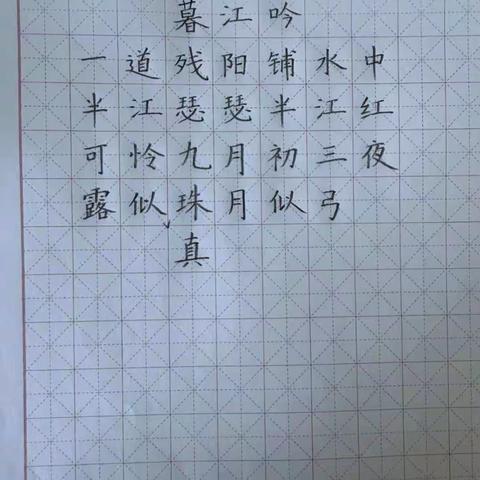 暮江吟
一道残阳铺水中
半江瑟瑟半江红
可怜九月初三夜
露似珠月似弓
真